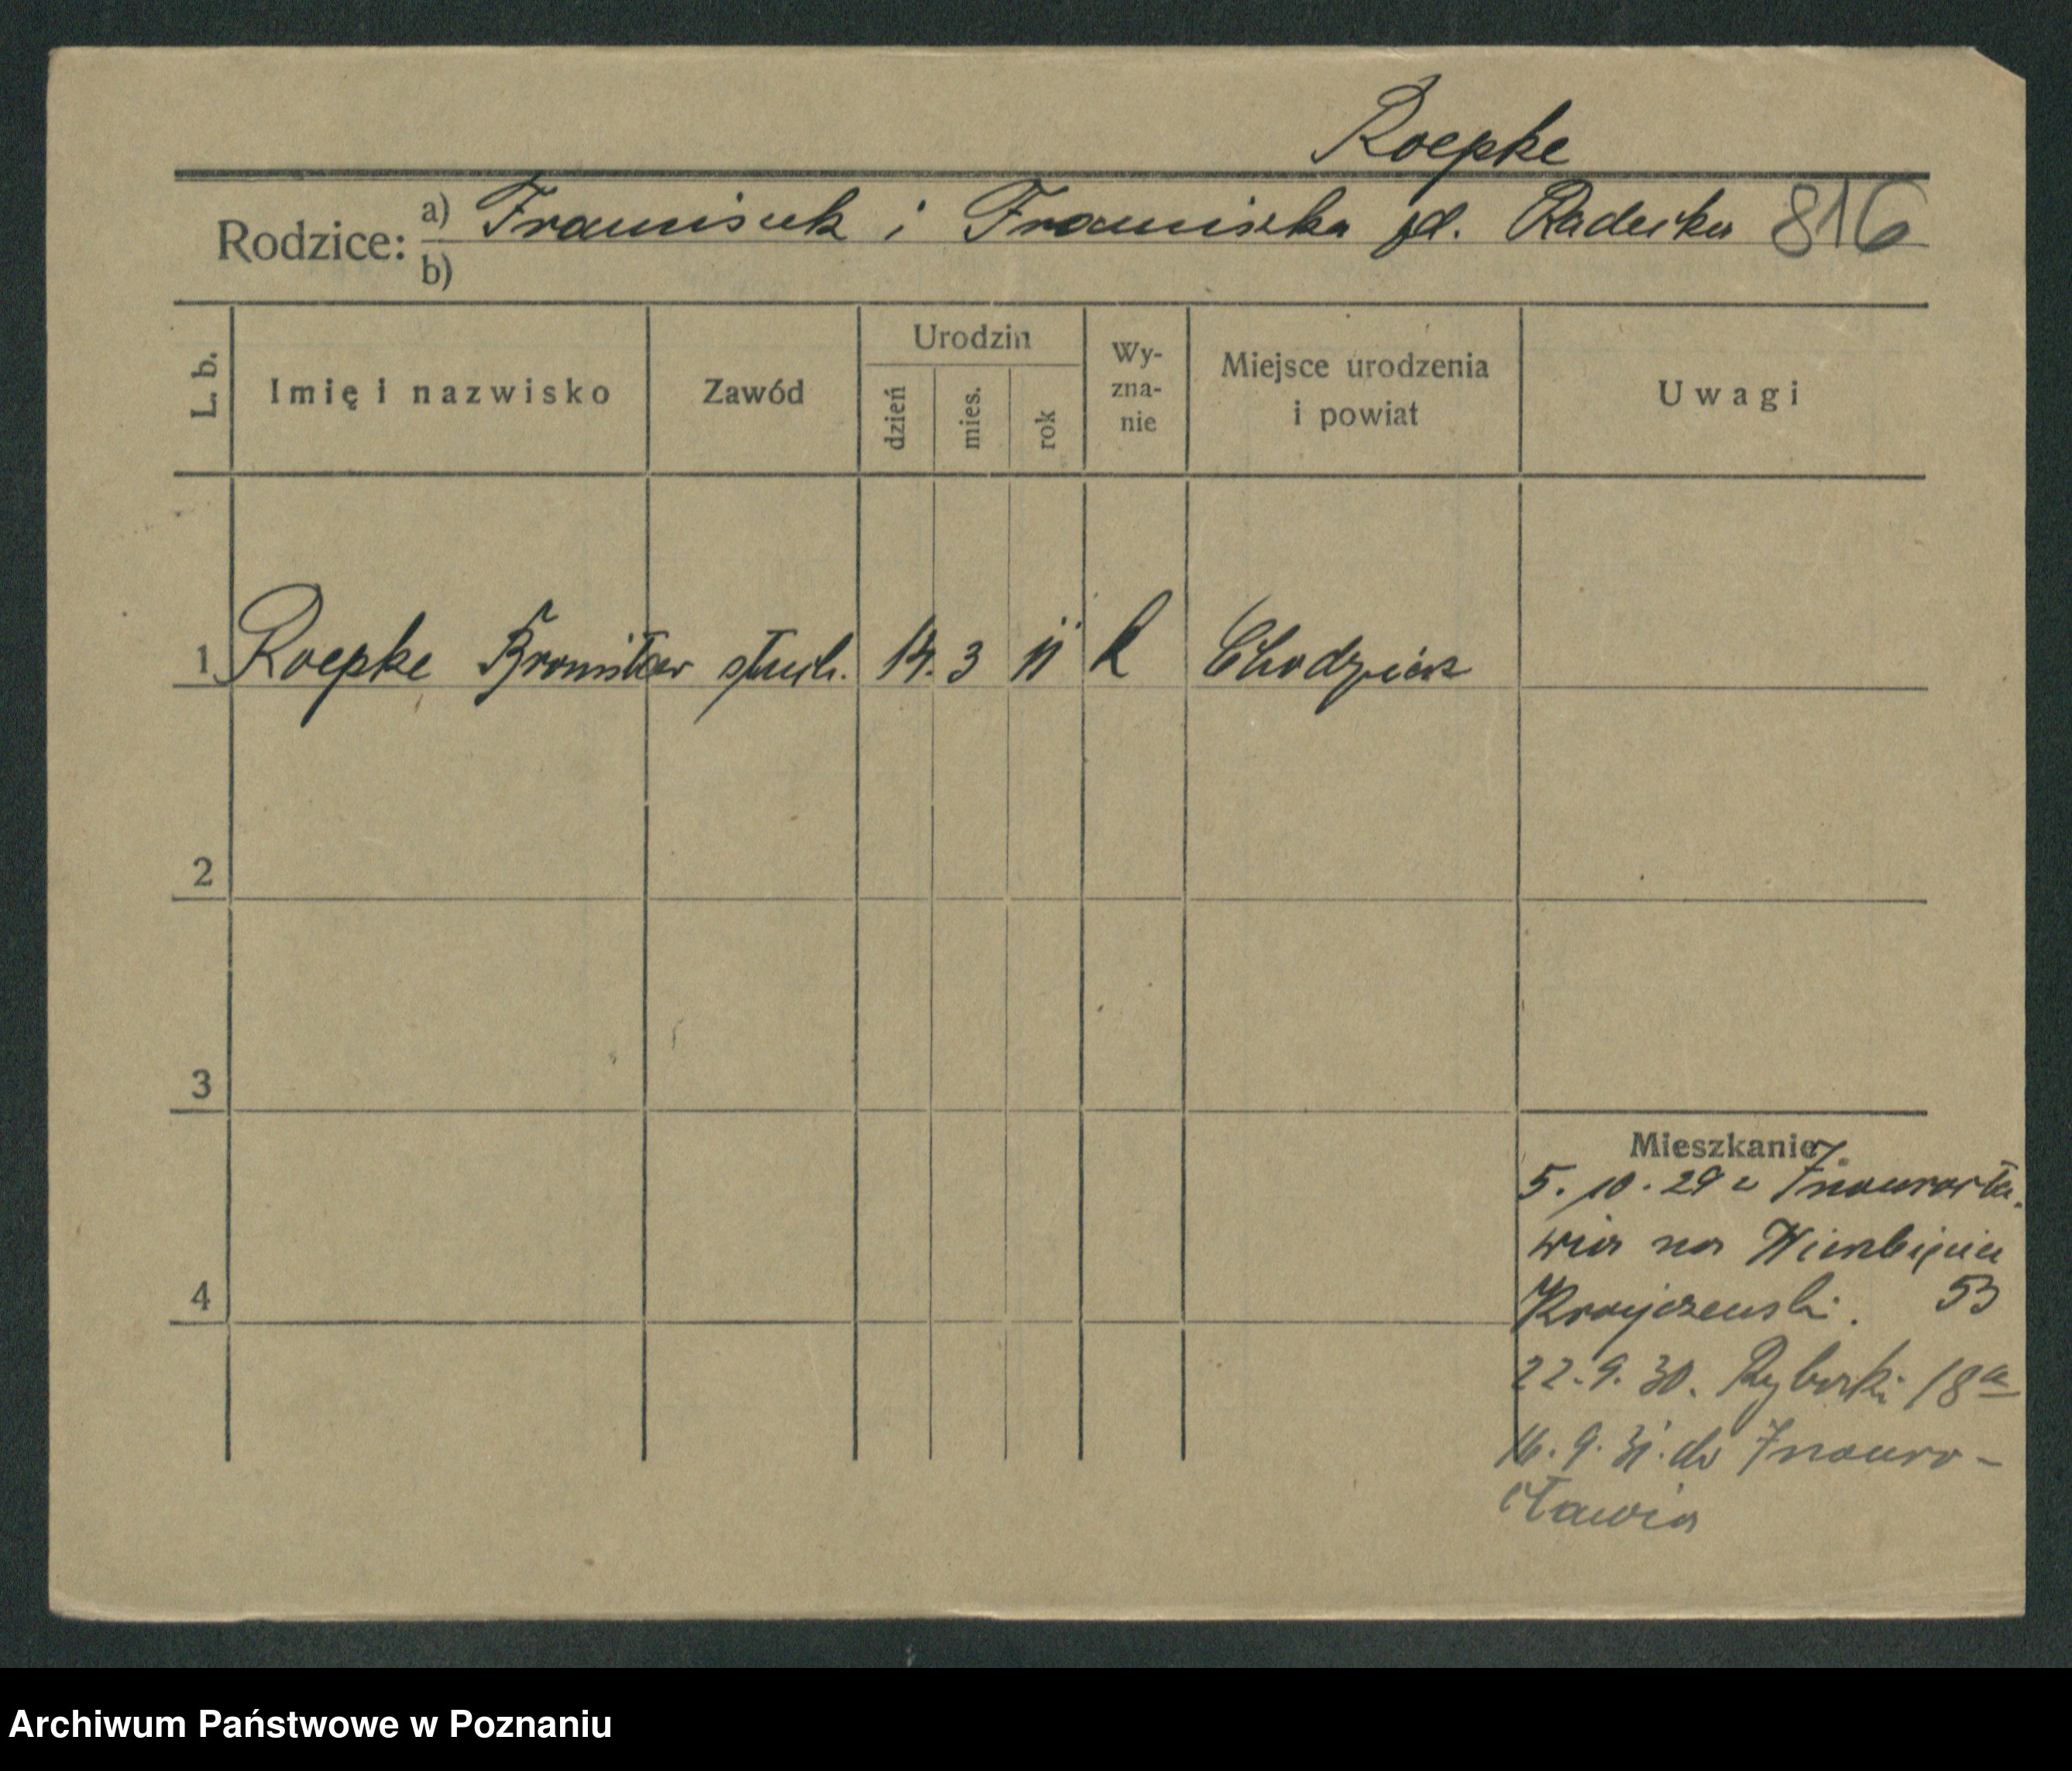 Roepke
Rodzice: a) Franciszek i Franciszka zd. Radecka 816
b)
L. b. Imię i nazwisko Zawód Urodzin dzień mies. rok Wy-zna-nie Miejsce urodzenia i powiat Uwagi
1 Roepke Bronisław słuch. 14. 3 11 k Chodzież
2
3
4
Mieszkanie
5. 10. 29 z Inowrocła-
wia na Wierzbięcice
53
22. 9. 30. Rybaki 18a
16. 9. 31. do Inowro-
cławia
Archiwum Państwowe w Poznaniu